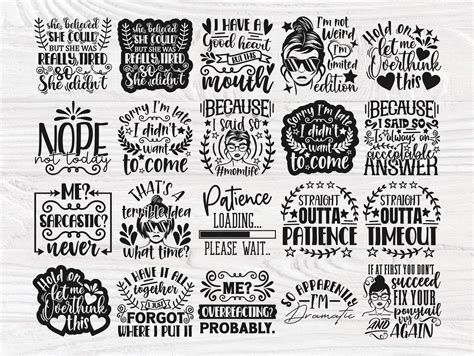 she believed
she could
but she was
REALLY TIRED
SO
She didn't
she believed
SHE COULD
BUT SHE WAS
REALLY TIRED
SO
She didn't
I HAVE A
Good heart
BUT THIS
mouth
I'm not
weird
I'm
limited
edition
Hold on
let me
Overthink
this
NOPE
not today
Sorry I'm late
I didn't
want
to come
BECAUSE
I said so
#momlife
Sorry I'm late
I didn't
want
to come
BECAUSE
I SAID SO
Is always an
acceptable
ANSWER
ME?
SARCASTIC?
never
THAT'S A
terrible idea
what time?
Patience
LOADING...
PLEASE WAIT..
STRAIGHT
OUTTA
PATIENCE
STRAIGHT
OUTTA
TIMEOUT
Hold on
let me
Overthink
this
I HAVE IT ALL
together
I JUST
FORGOT
WHERE I PUT IT
ME?
OVERREACTING?
PROBABLY.
SO APPARENTLY
I'M
Dramatic
IF AT FIRST YOU DON'T
succeed
FIX YOUR
ponytail
AND
try
AGAIN